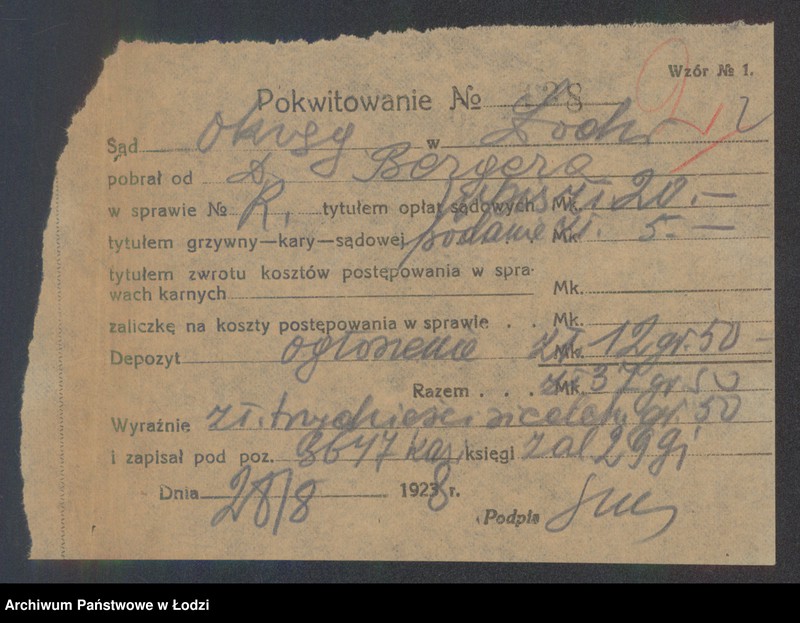 Wzór № 1.
Pokwitowanie № 28
Sąd Okręg w Łodzi
pobrał od D. Bergera
w sprawie № R. tytułem opłat sądowych Mk. zł. 20.—
tytułem grzywny—kary—sądowej podanie zł. Mk. 5.—
tytułem zwrotu kosztów postępowania w spra-
wach karnych Mk.
zaliczkę na koszty postępowania w sprawie . . Mk.
Depozyt ogłoszenie zł. Mk. 12 gr. 50 —
Razem . . . zł Mk. 37 gr 50
Wyraźnie zł. trzydzieści siedem gr. 50
i zapisał pod poz. 3647 kas. księgi zal 29 gi
Dnia 28/8 1928 r.
Podpis
Archiwum Państwowe w Łodzi